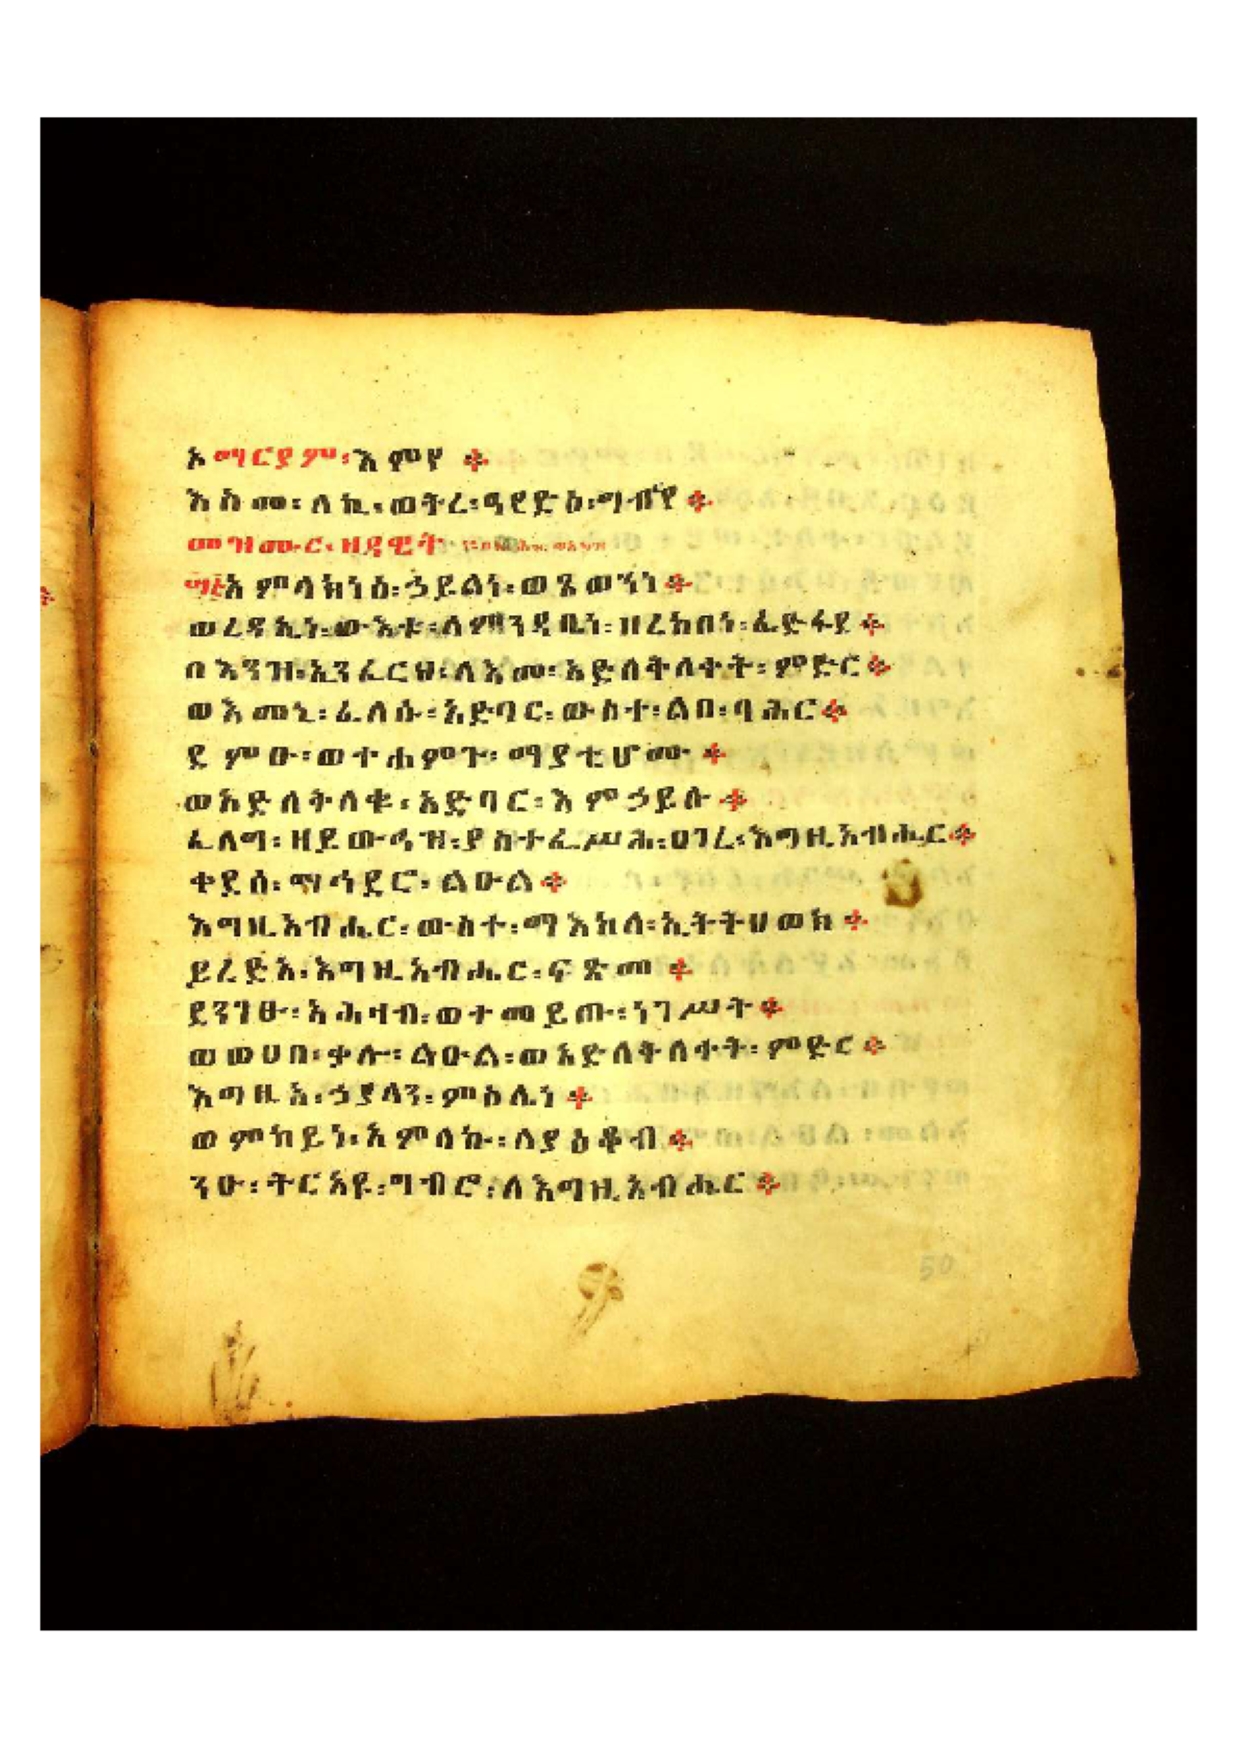 ኦማርያም፡እምየ፨
እስመ፡ለኪ፡ወትረ፡ዓየድዕ፡ግብየ፨
መዝሙር፡ዘዳዊት
፵፭አምላክነሰ፡ኃይልነ፡ወጼወንነ፨
ወረዳኢነ፡ውእቱ፡ለምንዳቤነ፡ዘረከበነ፡ፈድፋደ፨
በእንዝ፡ኢንፈርህ፡ለእመ፡አድለቅለቀት፡ምድር፨
ወእመኒ፡ፈለሱ፡አድባር፡ውስተ፡ልበ፡ባሕር፨
ደምፁ፡ወተሐምጉ፡ማያቲሆሙ፨
ወአድለቅለቁ፡አድባር፡እምኃይሉ፨
ፈለግ፡ዘይውሕዝ፡ያስተፌሥሕ፡ሀገረ፡እግዚአብሔር፨
ቀደሰ፡ማኅደሮ፡ልዑል፨
እግዚአብሔር፡ውስተ፡ማእከላ፡ኢትትሀወክ፨
ይረድአ፡እግዚአብሔር፡ፍጽመ፨
ደንገፁ፡አሕዛብ፡ወተመይጡ፡ነገሥት፨
ወወሀበ፡ቃሎ፡ልዑል፡ወአድለቅለቀት፡ምድር፨
እግዚአ፡ኃያላን፡ምስሌነ፨
ወምስካይነ፡አምላኩ፡ለያዕቆብ፨
ንዑ፡ትርአዩ፡ግብሮ፡ለእግዚአብሔር፨
50